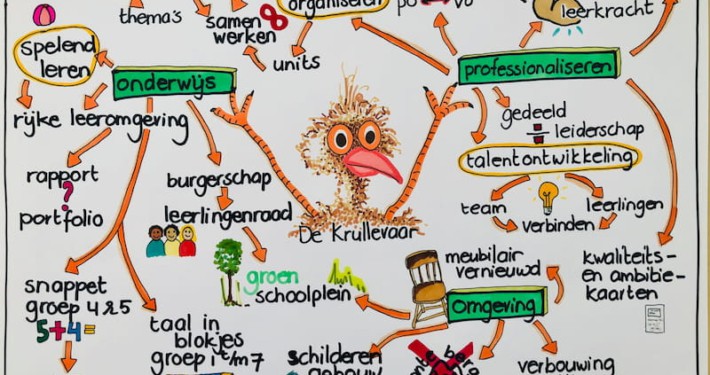 organiseren
thema's
samen
werken
units
po
vo
leerkracht
spelend
leren
onderwijs
professionaliseren
rijke leeromgeving
gedeeld
÷ leiderschap
talentontwikkeling
rapport
?
portfolio
burgerschap
leerlingenraad
team
leerlingen
verbinden
De Krullevaar
groen
schoolplein
meubilair
vernieuwd
kwaliteits-
en ambitie-
kaarten
snappet
groep 4 & 5
5+4=
Omgeving
taal in
blokjes
groep 1 t/m 7
schilderen
gebouw
verbouwing